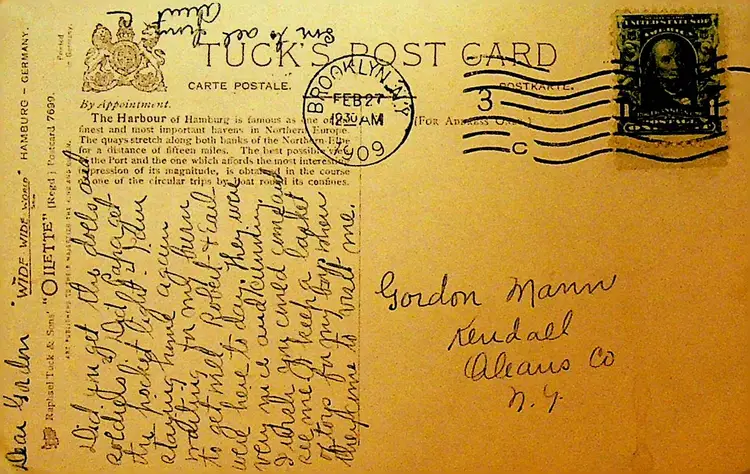 TUCK'S POST CARD
CARTE POSTALE.
POSTKARTE.
By Appointment.
(FOR ADDRESS ONLY.)
The Harbour of Hamburg is famous as one of
finest and most important havens in Northern Europe.
The quays stretch along both banks of the Northern Elbe
for a distance of fifteen miles. The best possible view
of the Port and the one which affords the most interesting
impression of its magnitude, is obtained in the course
of one of the circular trips by boat round its confines.
Printed
in Germany.
BROOKLYN, N.Y.
FEB 27
12 30 AM
1909
3
C
UNITED STATES OF
AMERICA
"WIDE WIDE WORLD" HAMBURG - GERMANY.
Raphael Tuck & Sons' "OILETTE" [Regd.] Postcard 7690.
ART PUBLISHERS TO THEIR MAJESTIES THE KING AND QUEEN.
Dear Gordon
Did you get the dolls and
soldiers? Did Papa get
the pocket light? I am
staying home again
waiting for my burn
to get well. Robert & Earl
were here to day. They were
very nice and cunning.
I wish you could come and
see me. I keep a basket
of toys for my boys when
they come to visit me.
Aunt
Gordon Mann
Kendall
Orleans Co
N.Y.